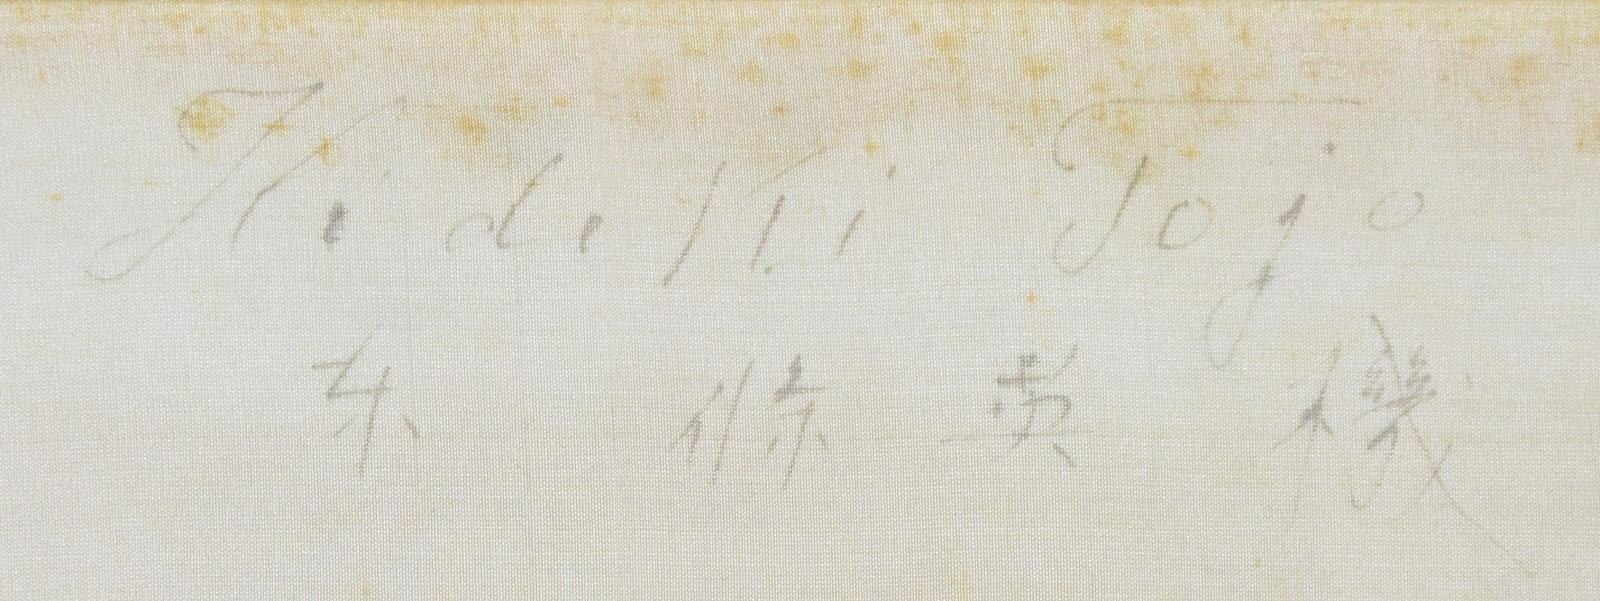 Hideki Tojo
東條英機